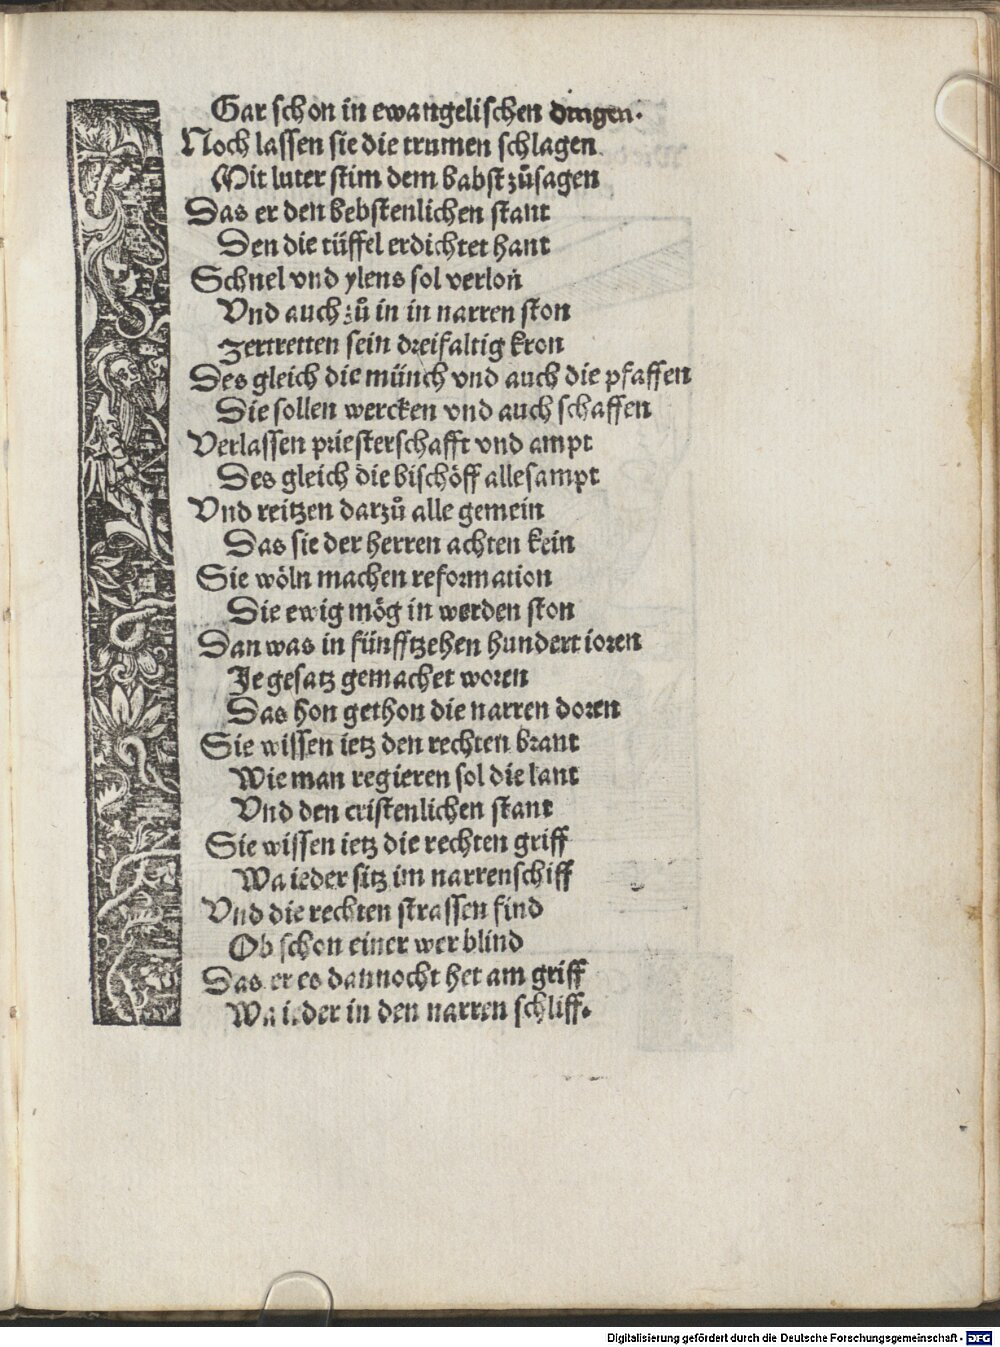 Gar schon in ewangelischen dingen.
Noch lassen sie die trumen schlagen
Mit luter stim dem babst zůsagen
Das er den bebstenlichen stant
Den die tüffel erdichtet hant
Schnel vnd ylens sol verlon
Vnd auch zů in in narren ston
Zertretten sein dreifaltig kron
Des gleich die münch vnd auch die pfaffen
Die sollen wercken vnd auch schaffen
Verlassen priesterschafft vnd ampt
Des gleich die bischöff allesampt
Vnd reitzen darzů alle gemein
Das sie der herren achten kein
Sie wöln machen reformation
Die ewig mög in werden ston
Dan was in fünfftzehen hundert ioren
Je gesatz gemachet woren
Das hon gethon die narren doren
Sie wissen ietz den rechten brant
Wie man regieren sol die lant
Vnd den cristenlichen stant
Sie wissen ietz die rechten griff
Wa ieder sitz im narrenschiff
Vnd die rechten strassen find
Ob schon einer wer blind
Das er es dannocht het am griff
Wa ieder in den narren schliff.
Digitalisierung gefördert durch die Deutsche Forschungsgemeinschaft - DFG